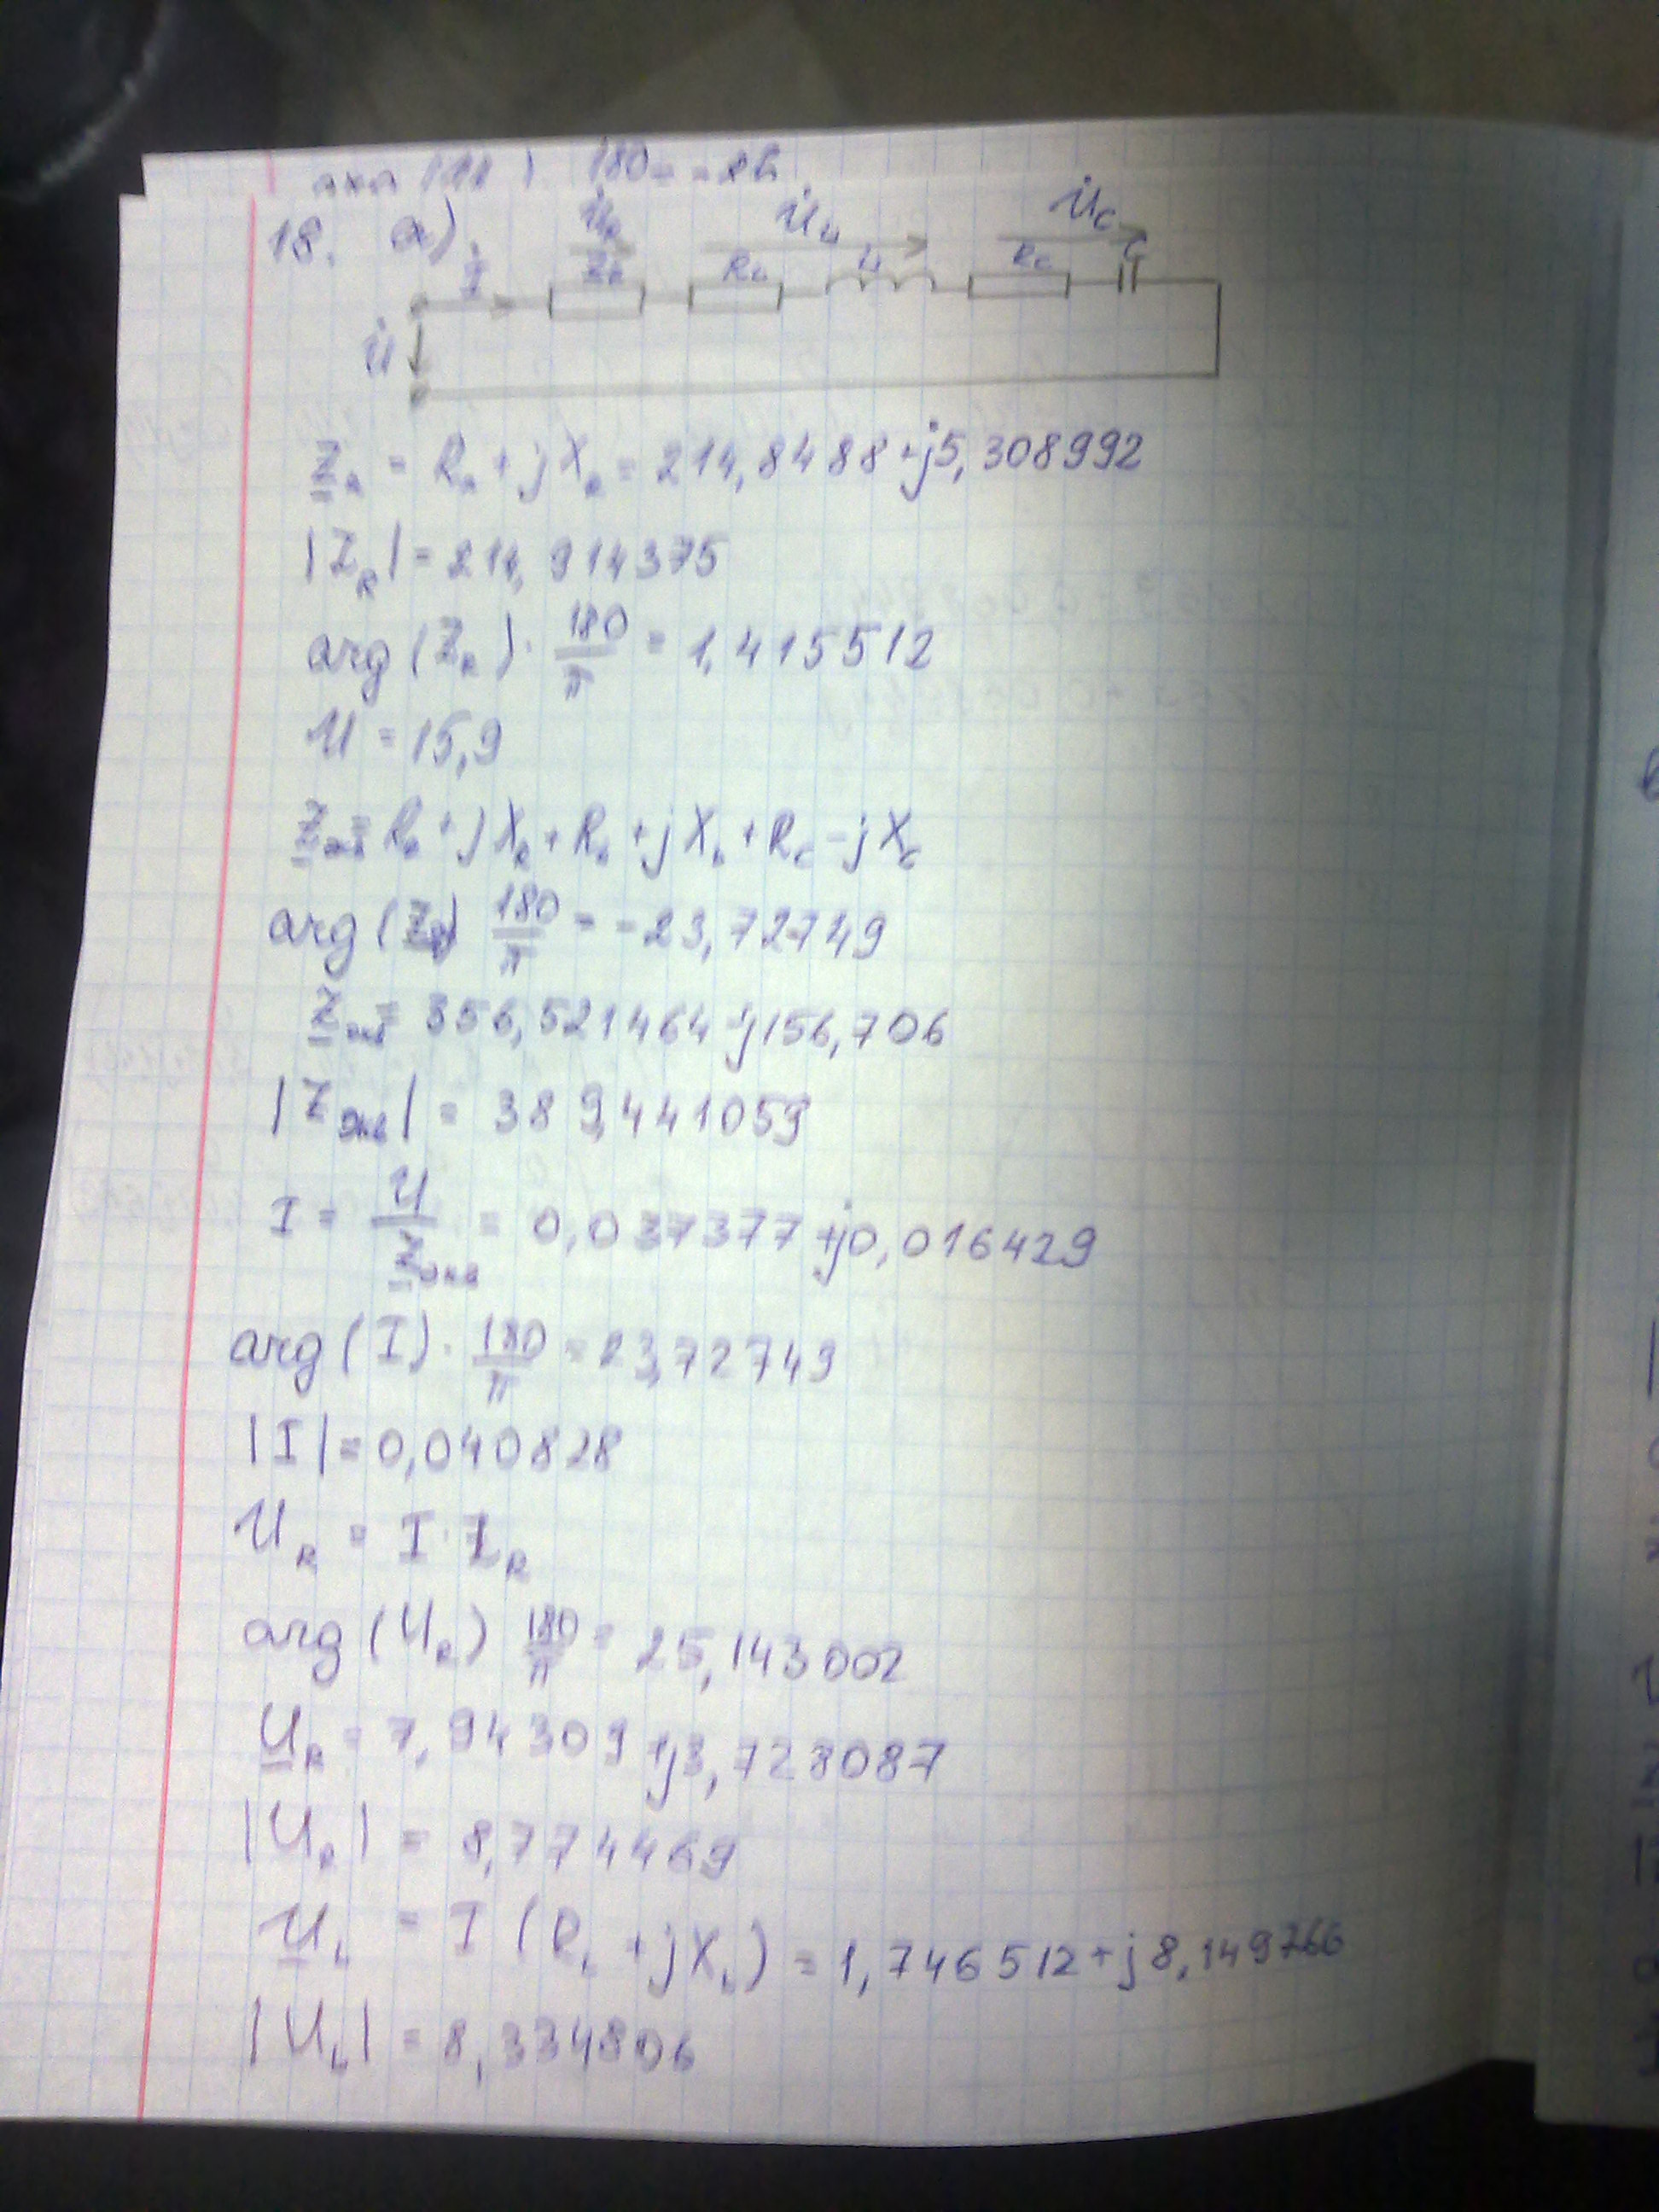 18. а)
İ
U̇_R
Z_R
U̇_L
R_L L
U̇_C
R_C C
U̇
Z_R = R_R + jX_R = 214,8488+j5,308992
|Z_R| = 214,914375
arg(Z_R)·180/π = 1,415512
U = 15,9
Z_экв = R_R + jX_R + R_L + jX_L + R_C - jX_C
180/π = -23,72749
Z_экв = 356,521464-j156,706
|Z_экв| = 389,441059
I = U/Z_экв = 0,037377+j0,016429
arg(I)·180/π = 23,72749
|I| = 0,040828
U_R = I·Z_R
arg(U_R) 180/π = 25,143002
U_R = 7,94309+j3,728087
|U_R| = 8,774469
U_L = I(R_L + jX_L) = 1,746512+j8,149766
|U_L| = 8,334806